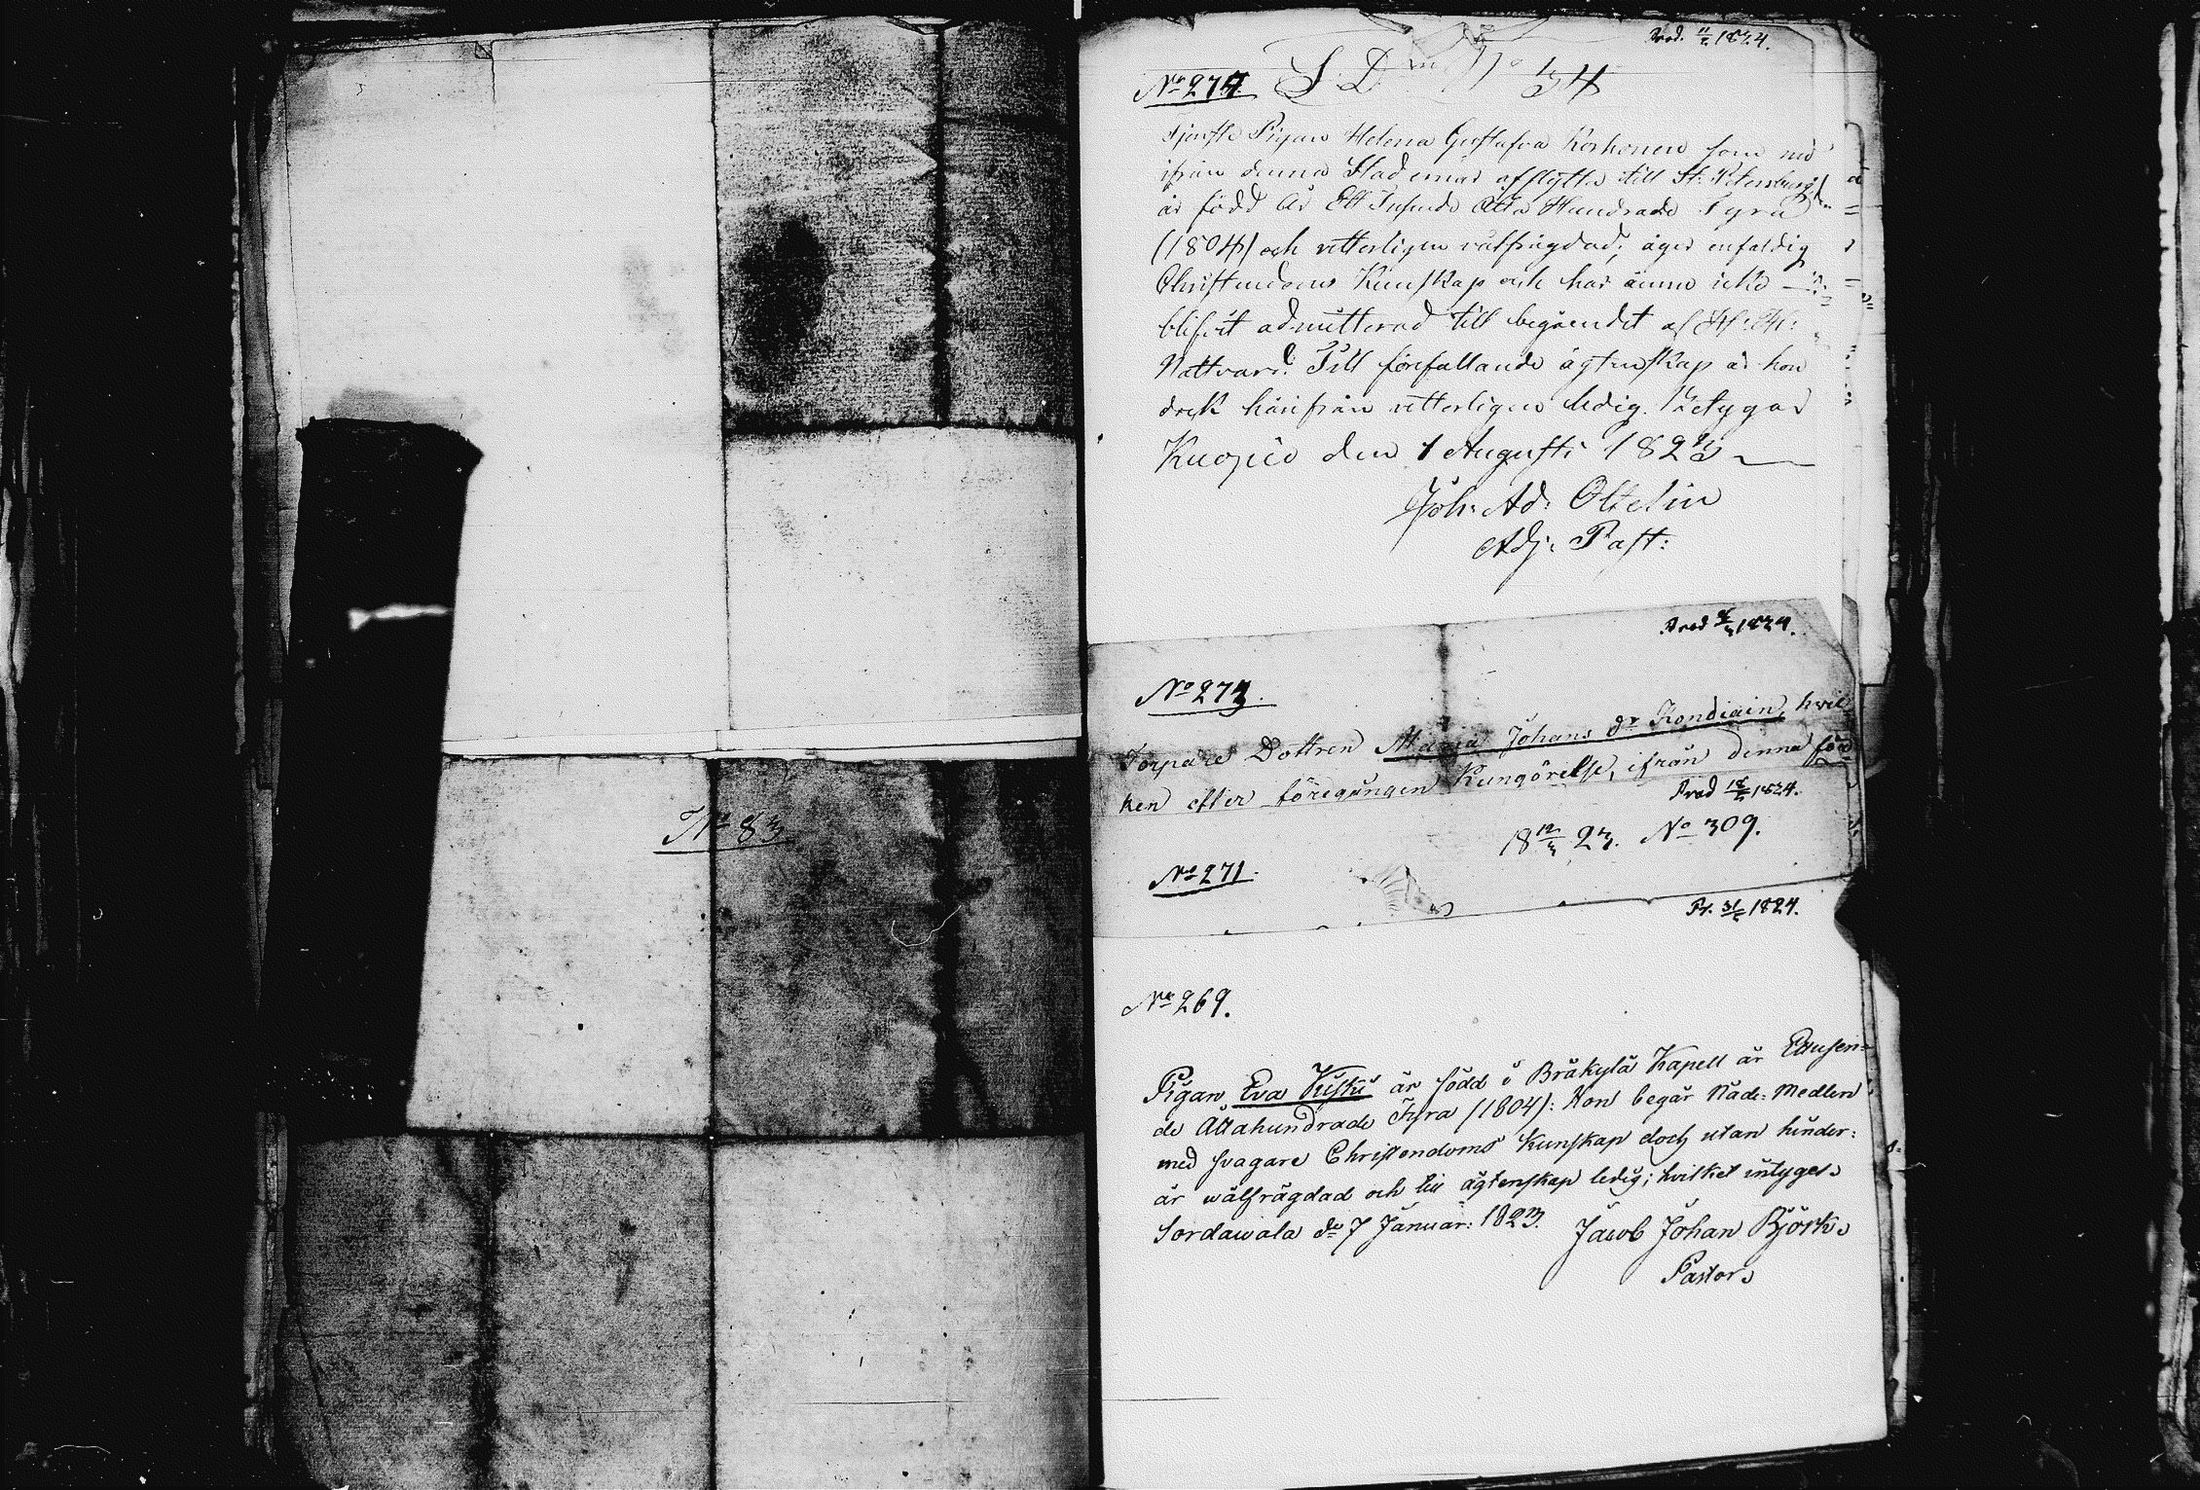 No 83
Prod. 11/2 1824.
No 274. S. D. No 34
Tjenste Pigan Helena Gustafva Korhonen som nu
ifrån denna Stad ernar afflytta till St. Petersburg
är född År Ett Tusende Åtta Hundrade Fyra
(1804) och vitterligen välfrägdad; äger enfaldig
Christendoms Kunskap och har ännu icke
blifvit admitterad till begåendet af H: H:
Nattvard. Till förefallande ägtenskap är hon
dock härifrån vitterligen ledig. Betygar
Kuopio den 1 Augusti 1823
Joh: Ad: Ottelin
Adj: Past:
Prod 1824.
No 273.
Torpare Dottren Maria Johans dr Kondiain, hvil
ken efter föregången Kungörelse, ifrån denna för
Prod 18/2 1824.
18 12/3 23. No 309.
No 271.
Pr. 31/ 1824.
No 269.
Pigan Eva Kiiski är född i Bräkylä Kapell år Ettusen=
de Åttahundrade Fyra (1804): Hon begår Nåde: Medlen
med svagare Christendoms Kunskap doch utan hinder:
är wälfrägdad och till ägtenskap ledig; hvilket intyges
Sordawala dn 7 Januar: 1823.
Jacob Johan Björk
Pastor